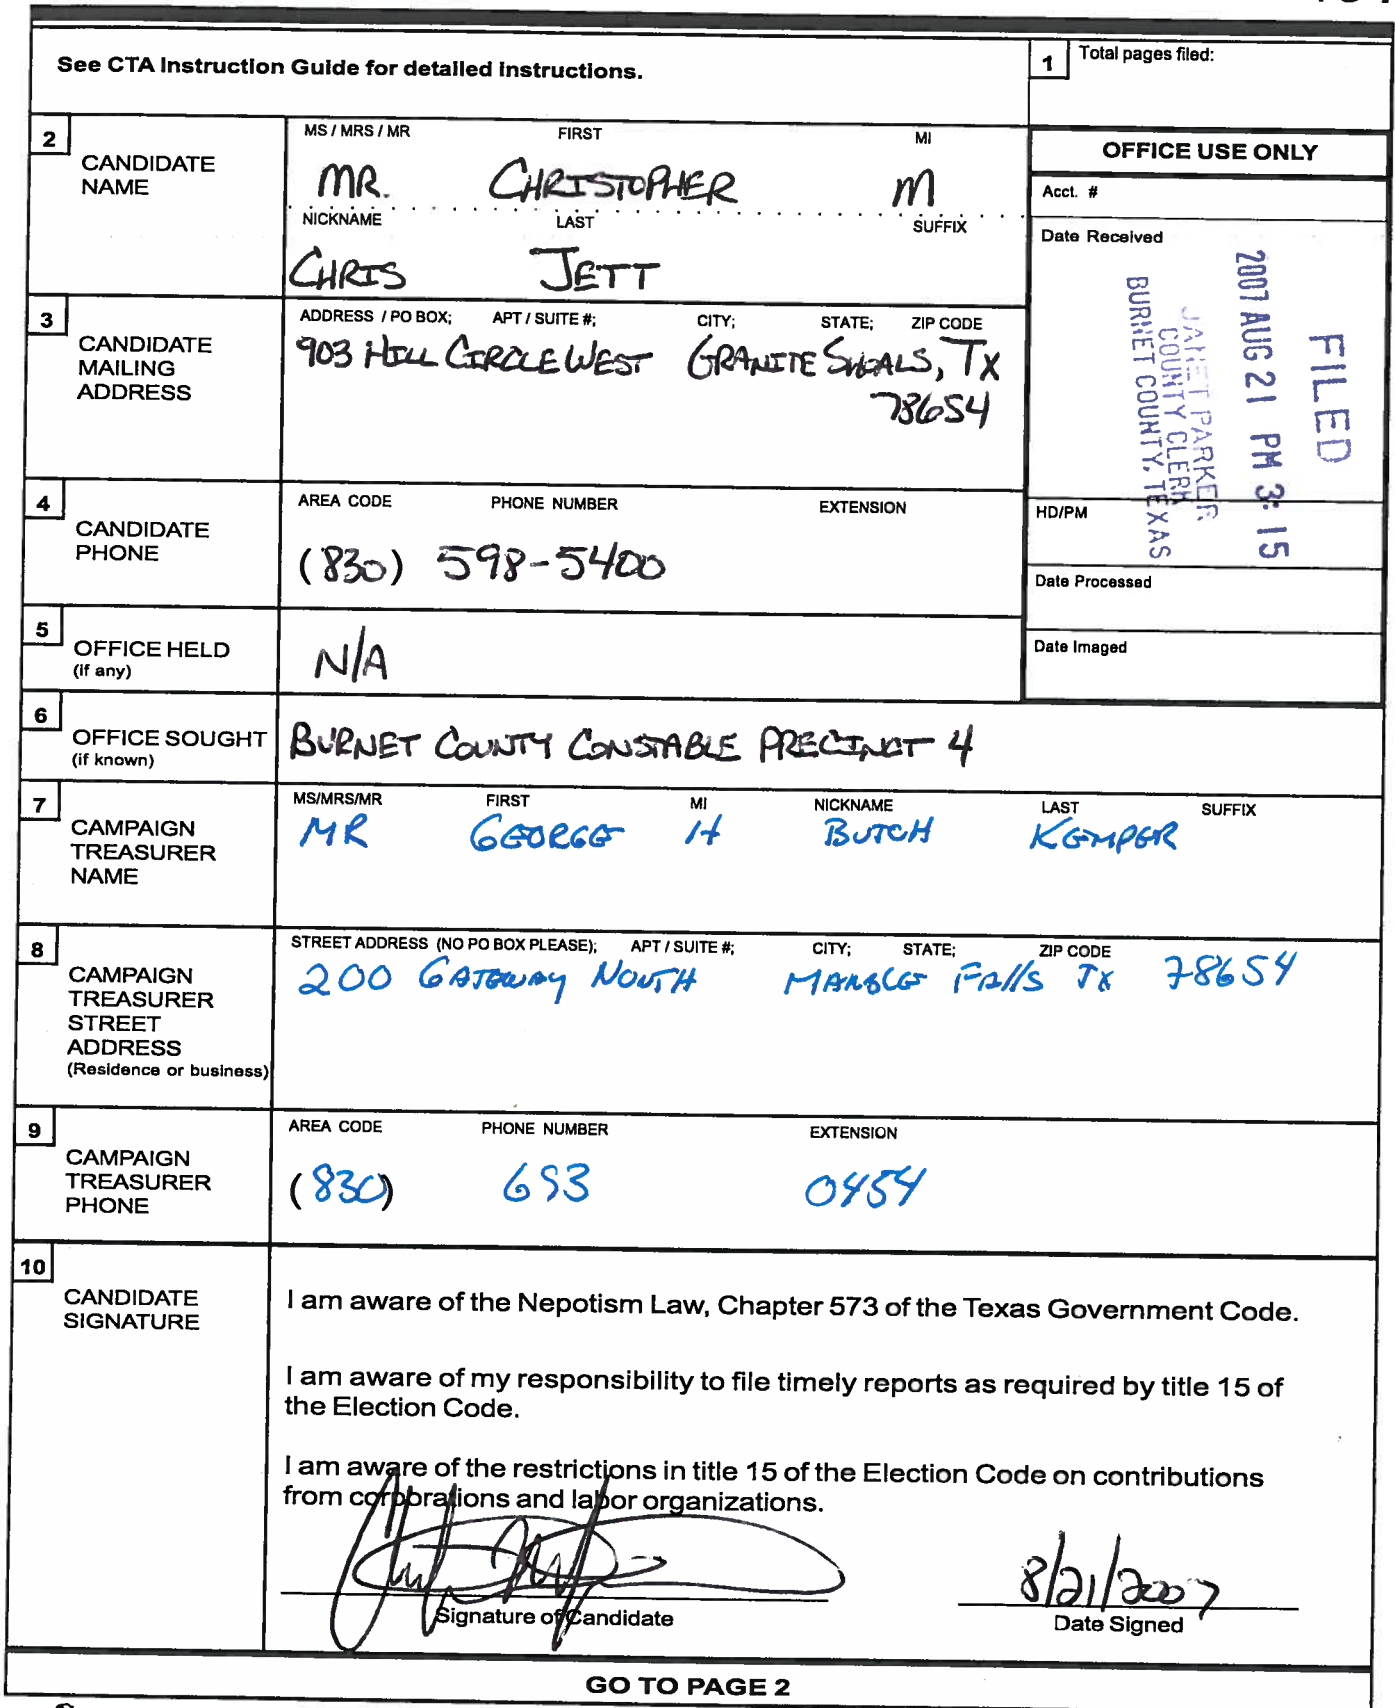 See CTA Instruction Guide for detailed instructions.
1 Total pages filed:
2 CANDIDATE NAME
MS / MRS / MR FIRST MI
MR. CHRISTOPHER M
NICKNAME LAST SUFFIX
CHRIS JETT
OFFICE USE ONLY
Acct. #
Date Received
FILED
2007 AUG 21 PM 3:15
JANET PARKER
COUNTY CLERK
BURNET COUNTY, TEXAS
HD/PM
Date Processed
Date Imaged
3 CANDIDATE MAILING ADDRESS
ADDRESS / PO BOX; APT / SUITE #; CITY; STATE; ZIP CODE
903 HILL CIRCLE WEST GRANITE SHOALS, TX
78654
4 CANDIDATE PHONE
AREA CODE PHONE NUMBER EXTENSION
(830) 598-5400
5 OFFICE HELD
(if any)
N/A
6 OFFICE SOUGHT
(if known)
BURNET COUNTY CONSTABLE PRECINCT 4
7 CAMPAIGN TREASURER NAME
MS/MRS/MR FIRST MI NICKNAME LAST SUFFIX
MR GEORGE H BUTCH KEMPER
8 CAMPAIGN TREASURER STREET ADDRESS
(Residence or business)
STREET ADDRESS (NO PO BOX PLEASE); APT / SUITE #; CITY; STATE; ZIP CODE
200 GATEWAY NORTH MARBLE FAlls TX 78654
9 CAMPAIGN TREASURER PHONE
AREA CODE PHONE NUMBER EXTENSION
(830) 693 0454
10 CANDIDATE SIGNATURE
I am aware of the Nepotism Law, Chapter 573 of the Texas Government Code.
I am aware of my responsibility to file timely reports as required by title 15 of
the Election Code.
I am aware of the restrictions in title 15 of the Election Code on contributions
from corporations and labor organizations.
8/21/2007
Signature of Candidate Date Signed
GO TO PAGE 2